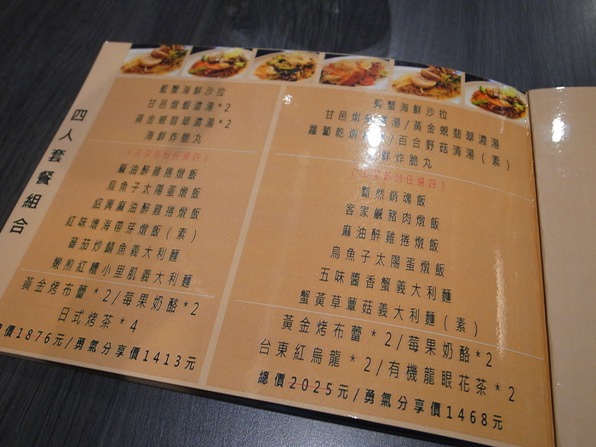 四人套餐組合
鴛蟹海鮮沙拉
甘邑燉蝦濃湯*2
黃金蜆翡翠濃湯*2
海鮮炸脆丸
麻油醉雞捲燉飯
烏魚子太陽蛋燉飯
紹興麻油醉雞捲燉飯
紅味噌海帶芽燉飯(素)
蕃茄炒鯖魚義大利麵
嫩煎紅糟小里肌義大利麵
黃金烤布蕾*2/莓果奶酪*2
日式烤茶*4
總價1876元/勇氣分享價1413元
鴛蟹海鮮沙拉
甘邑燉蝦濃湯/黃金蜆翡翠濃湯
蘿蔔乾燉/百合野菇清湯(素)
海鮮炸脆丸
任選四)
黯然銷魂飯
客家鹹豬肉燉飯
麻油醉雞捲燉飯
烏魚子太陽蛋燉飯
五味醬香蟹義大利麵
蟹黃草蕈菇義大利麵(素)
黃金烤布蕾*2/莓果奶酪*2
台東紅烏龍*2/有機龍眼花茶*2
總價2025元/勇氣分享價1468元